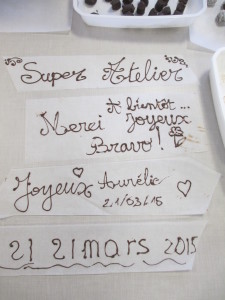 Super Atelier
A bientôt...
Merci Joyeux
Bravo!
Joyeux Aurélie
21/03/15
21 21 mars 2015